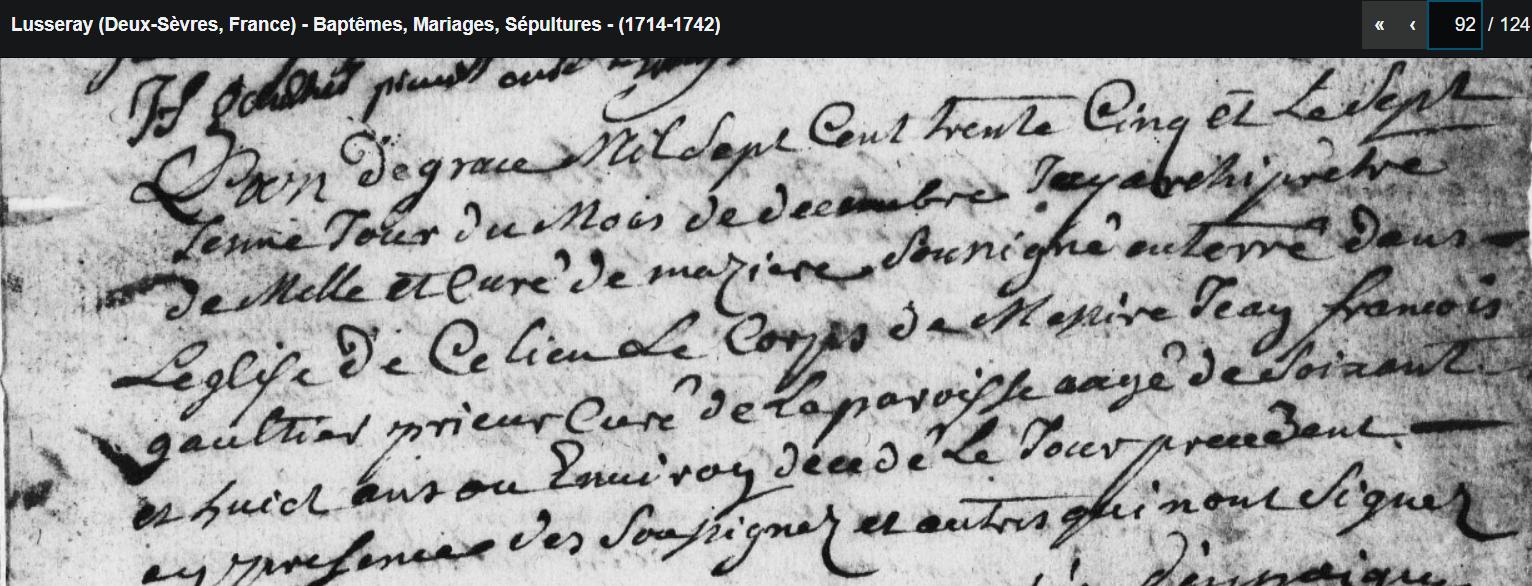 Lusseray (Deux-Sèvres, France) - Baptêmes, Mariages, Sépultures - (1714-1742)
« ‹ 92 / 124
prieur curé
Lan de grace Mil Sept Cent trente Cinq et Le Sept
iesme Jour du Mois de decembre Jay archiprêtre
de Melle et Curé de maziere Sousigné enterré dans
Leglise de Ce lieu Le Corps de Messire Jean francois
gaultier prieur Curé de La paroisse aagé de Soixant
et huict ans ou Enuiron decedé Le Jour precedent
en presence des Soussignez et autres qui nont Signez